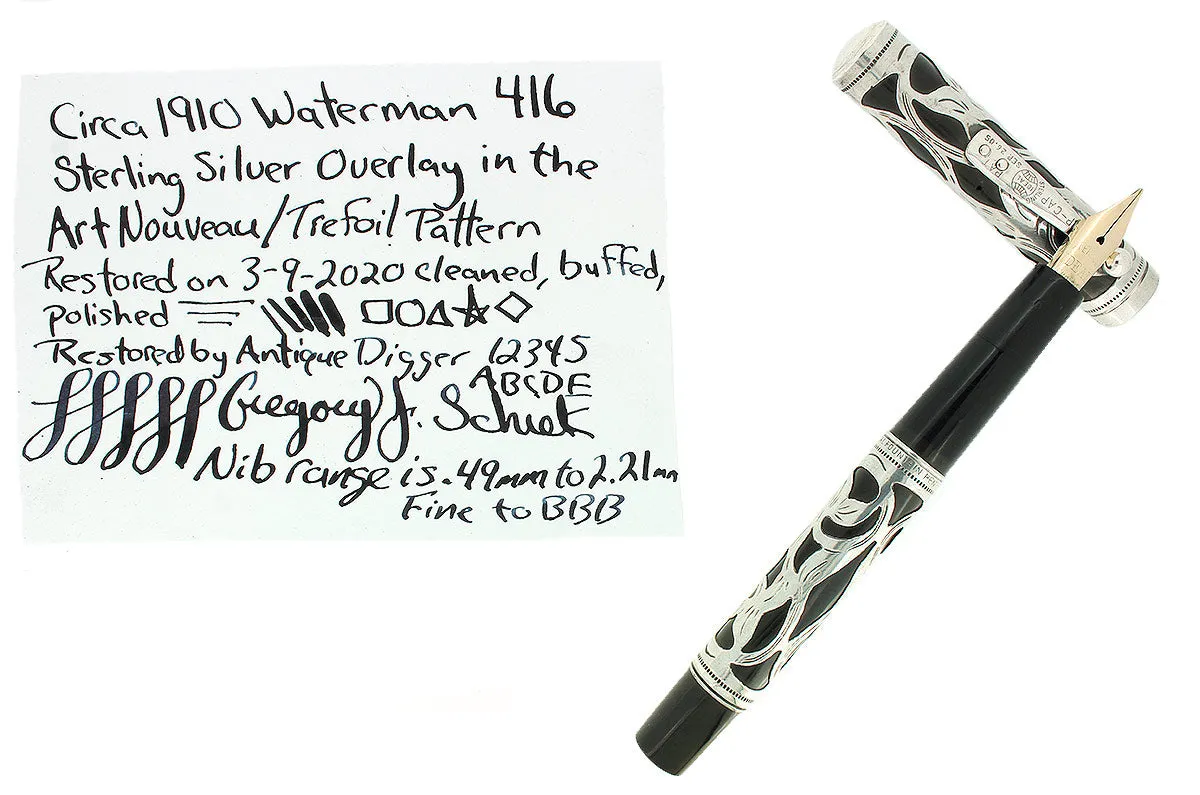 Circa 1910 Waterman 416
Sterling Silver Overlay in the
Art Nouveau/Trefoil Pattern
Restored on 3-9-2020 cleaned, buffed,
polished
Restored by Antique Digger 12345
ABCDE
Gregory J.
Nib range is .49mm to 2.21mm
Fine to BBB